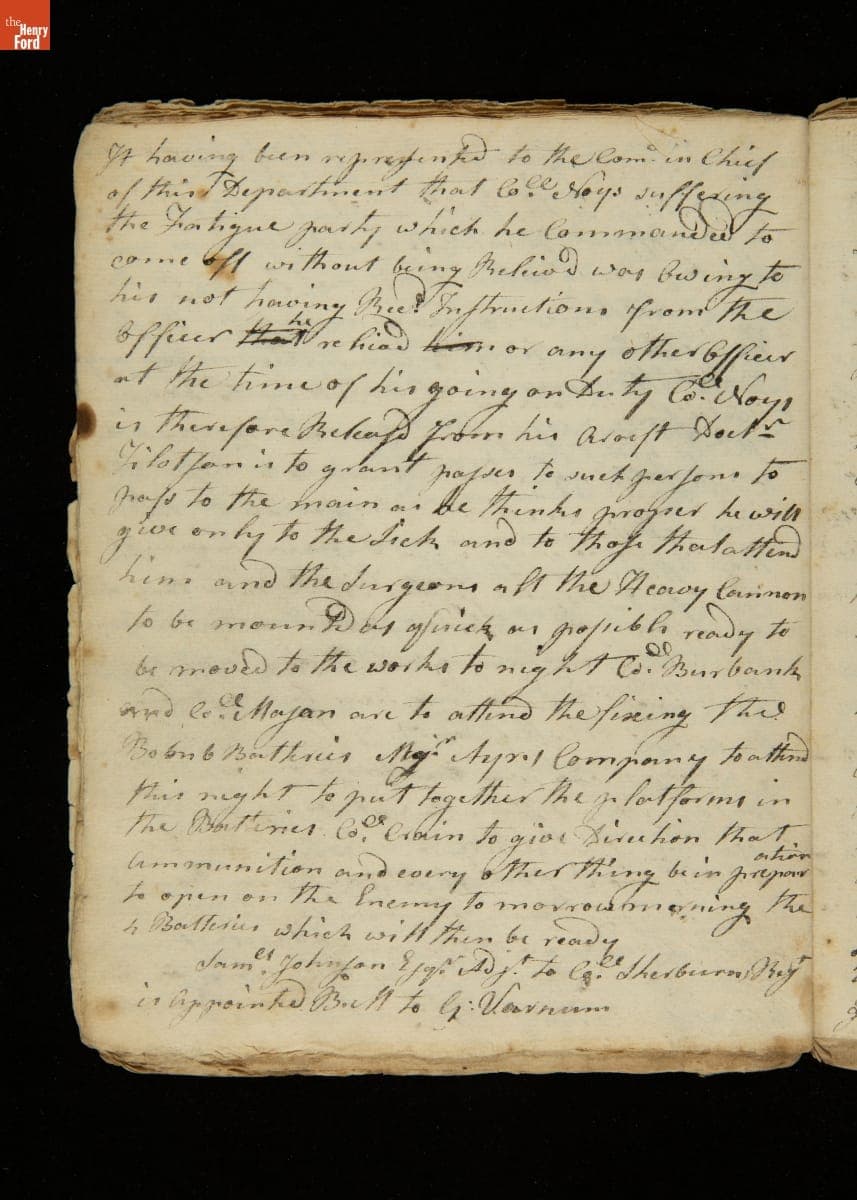 the
Henry
Ford
It having been represented to the Com.r in Chief
of this Department that Co.ll Noys suffering
the Fatigue party which he Commanded to
come off without being Reliev'd was Owing to
his not having Rec.d Instructions from the
Officer that he relievd him or any other Officer
at the time of his going on Duty Co.ll Noys
is therefore Releas'd from his Arrest Doct.r
Tilotson is to grant passes to such persons to
pass to the main as he thinks proper he will
give only to the Sick and to those that attend
him and the Surgeons all the Heavy Cannon
to be mounted as quick as possible ready to
be moved to the works to night Co.ll Burbank
and Co.ll Mason are to attend the fixing the
Bobmb Batteries Maj.r Ayrs Company to attend
this night to put together the platforms in
the Batteries Co.ll Crain to give Direction that
Ammunition and every other thing be in preparation
to open on the Enemy to morrow morning the
4 Batteries which will then be ready
Sam.el Johnson Esq.r Adj.t to Co.ll Sherburns Reg.t
is Appointed B: M to G: Varnum